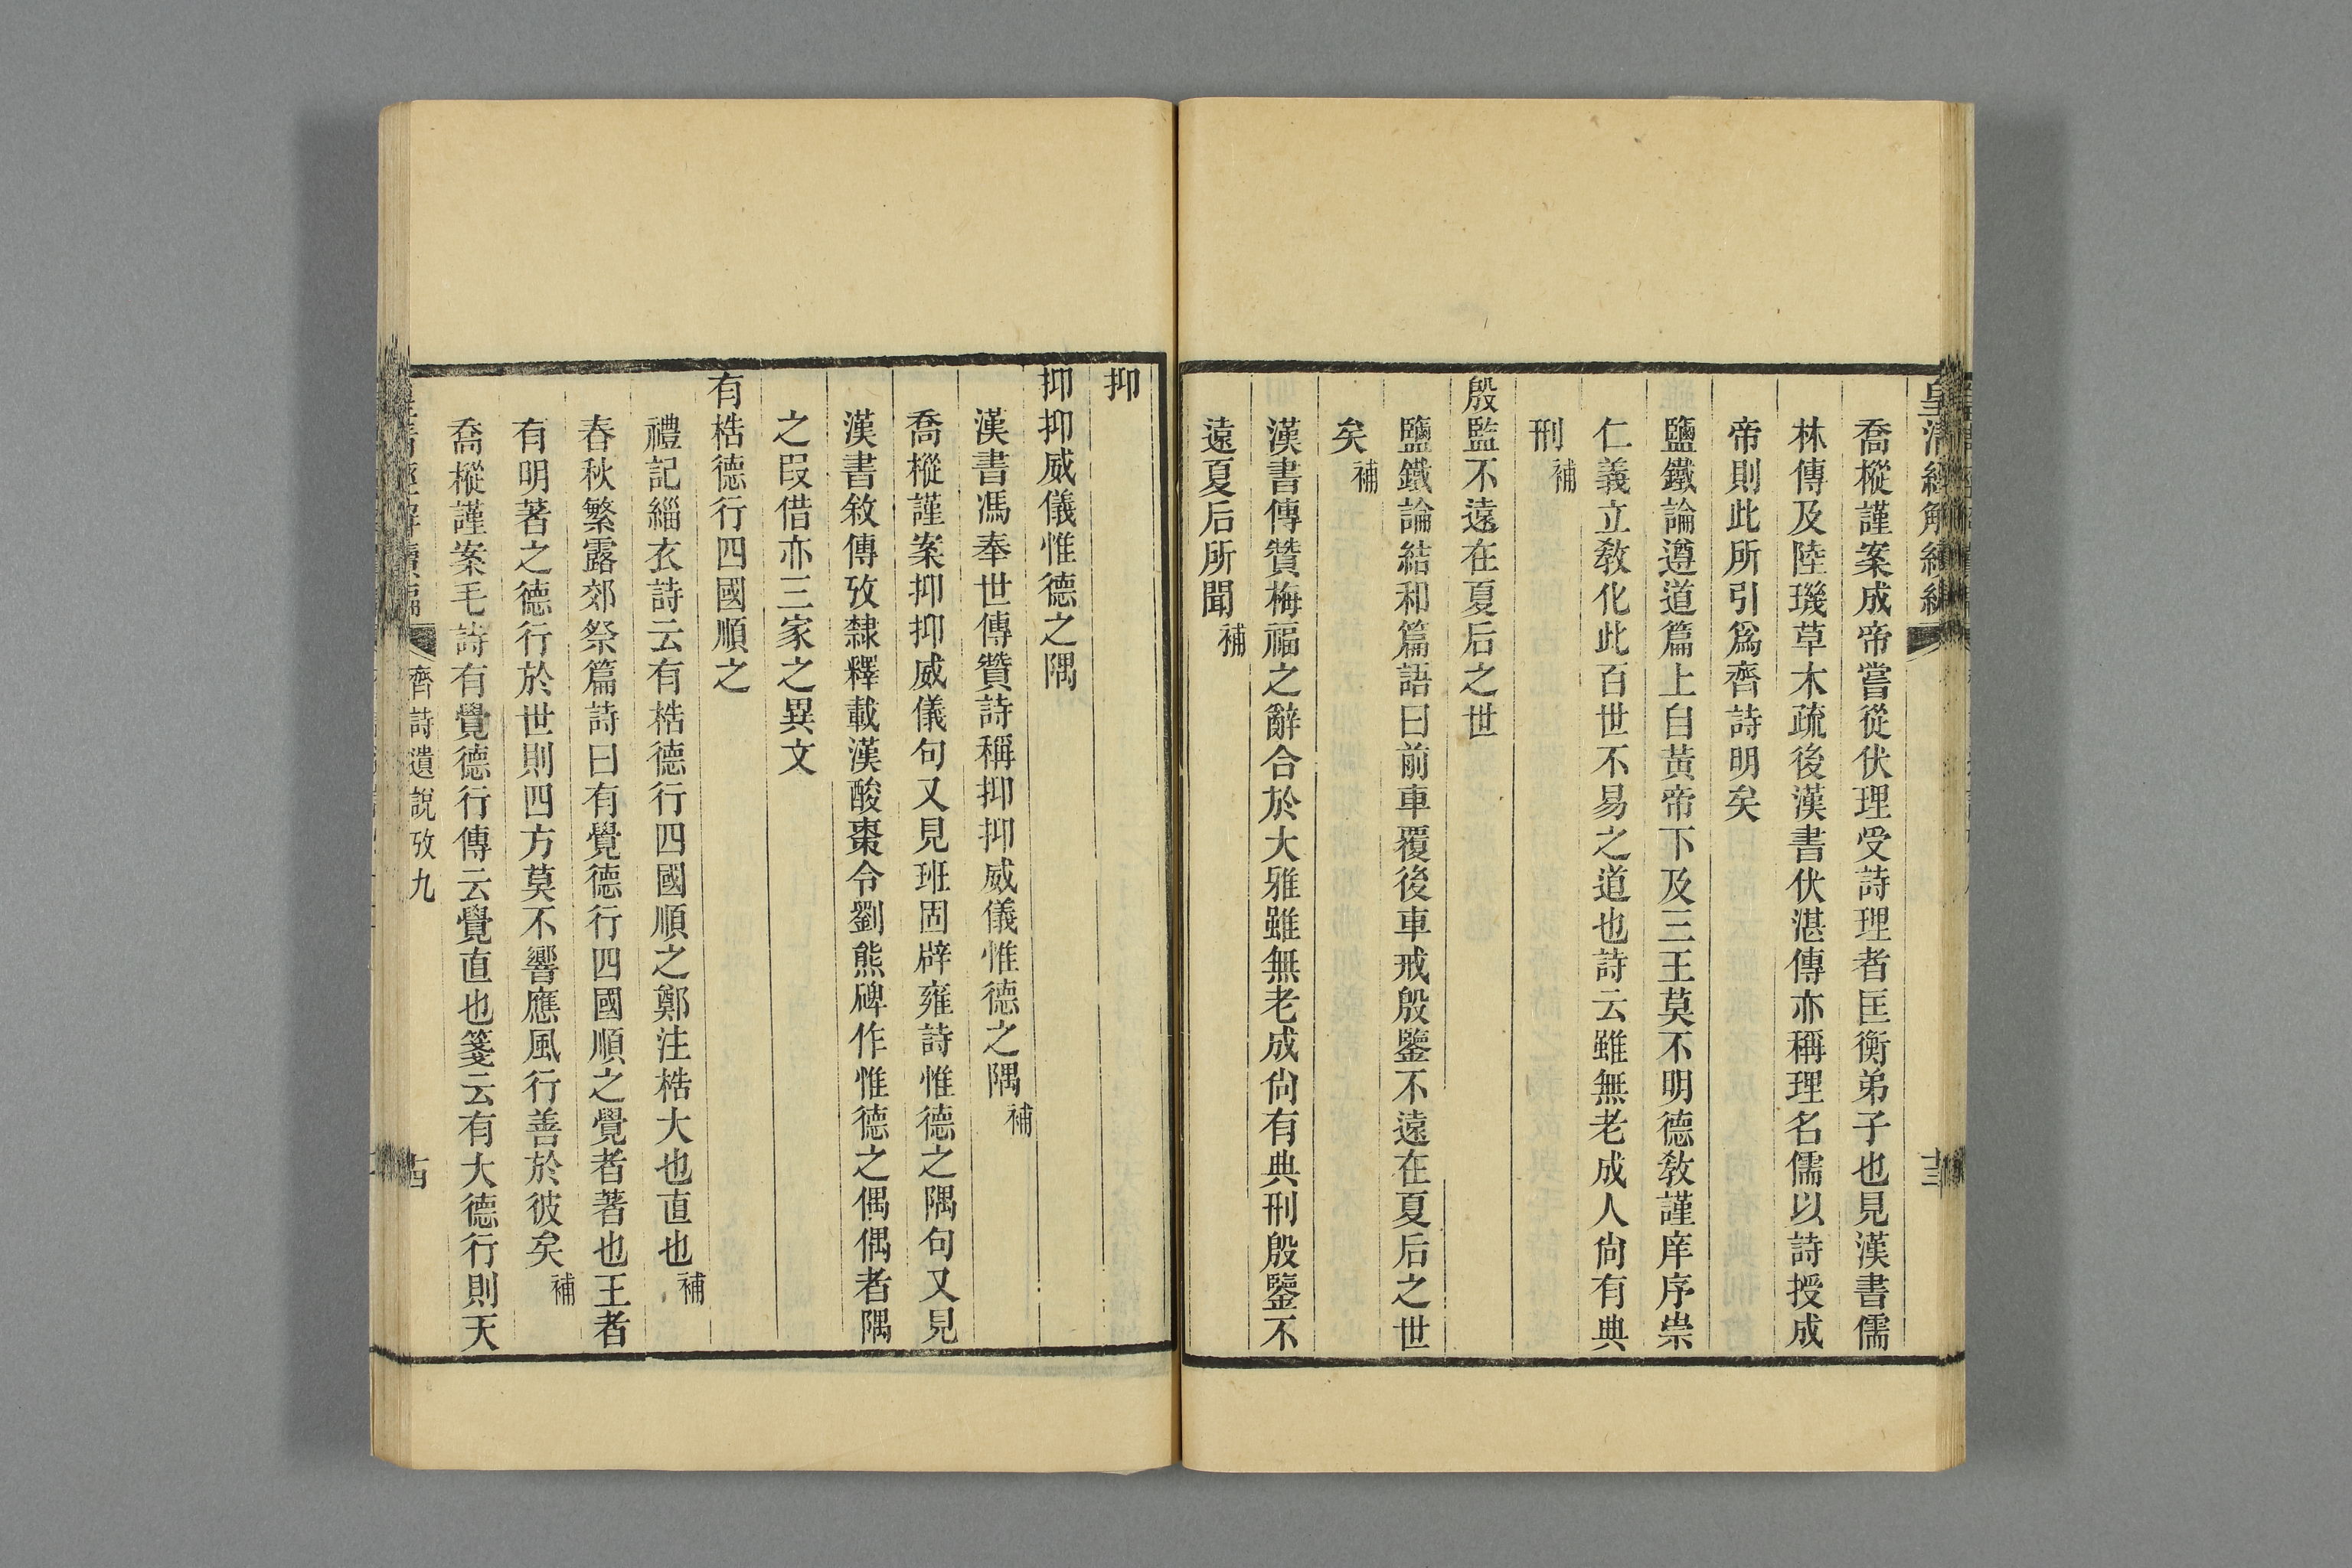 皇清經解續編
十三
喬樅謹案成帝嘗從伏理受詩理者匡衡弟子也見漢書儒
林傳及陸璣草木疏後漢書伏湛傳亦稱理名儒以詩授成
帝則此所引爲齊詩明矣
鹽鐵論遵道篇上自黃帝下及三王莫不明德敎謹庠序崇
仁義立敎化此百世不易之道也詩云雖無老成人尙有典
刑補
殷監不遠在夏后之世
鹽鐵論結和篇語曰前車覆後車戒殷鑒不遠在夏后之世
矣補
漢書傳贊梅福之辭合於大雅雖無老成尙有典刑殷鑒不
遠夏后所聞補
抑
抑抑威儀惟德之隅
漢書馮奉世傳贊詩稱抑抑威儀惟德之隅補
喬樅謹案抑抑威儀句又見班固辟雍詩惟德之隅句又見
漢書敘傳攷隸釋載漢酸棗令劉熊碑作惟德之偶偶者隅
之叚借亦三家之異文
有梏德行四國順之
禮記緇衣詩云有梏德行四國順之鄭注梏大也直也補
春秋繁露郊祭篇詩曰有覺德行四國順之覺者著也王者
有明著之德行於世則四方莫不響應風行善於彼矣補
喬樅謹案毛詩有覺德行傳云覺直也箋云有大德行則天
皇清經解續編
齊詩遺說攷九
十四